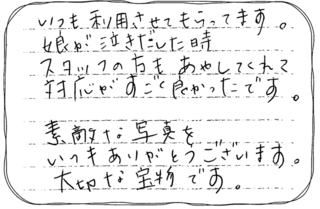 いつも利用させてもらってます。
娘が泣きだした時
スタッフの方もあやしてくれて
対応がすごく良かったです。
素敵な写真を
いつもありがとうございます。
大切な宝物です。